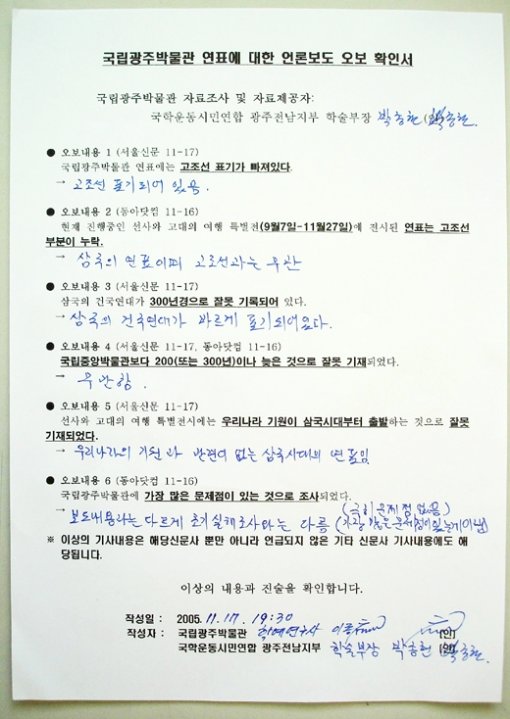 국립광주박물관 연표에 대한 언론보도 오보 확인서
국립광주박물관 자료조사 및 자료제공자:
국학운동시민연합 광주전남지부 학술부장 박종현 (인)
● 오보내용 1 (서울신문 11-17)
국립광주박물관 연표에는 고조선 표기가 빠져있다.
→ 고조선 표기되어 있음.
● 오보내용 2 (동아닷컴 11-16)
현재 진행중인 선사와 고대의 여행 특별전(9월7일-11월27일)에 전시된 연표는 고조선
부분이 누락.
→ 삼국의 연표이며 고조선과는 무관
● 오보내용 3 (서울신문 11-17)
삼국의 건국연대가 300년경으로 잘못 기록되어 있다.
→ 삼국의 건국연대가 바르게 표기되어있다.
● 오보내용 4 (서울신문 11-17, 동아닷컴 11-16)
국립중앙박물관보다 200(또는 300년)이나 늦은 것으로 잘못 기재되었다.
→ 무난함.
● 오보내용 5 (서울신문 11-17)
선사와 고대의 여행 특별전시에는 우리나라 기원이 삼국시대부터 출발하는 것으로 잘못
기재되었다.
→ 우리나라의 기원과 관련이 없는 삼국시대의 연표임
● 오보내용 6 (동아닷컴 11-16)
국립광주박물관에 가장 많은 문제점이 있는 것으로 조사되었다.
(극히 문제점 없음)
→ 보도내용과는 다르게 초기 실체조사와는 다름 (가장 많은 문제점이 있는게 아님)
※ 이상의 기사내용은 해당신문사 뿐만 아니라 언급되지 않은 기타 신문사 기사내용에도 해
당됩니다.
이상의 내용과 진술을 확인합니다.
작성일 : 2005. 11. 17. 19:30
작성자 : 국립광주박물관 학예연구사 (인)
국학운동시민연합 광주전남지부 학술부장 박종현 (인)